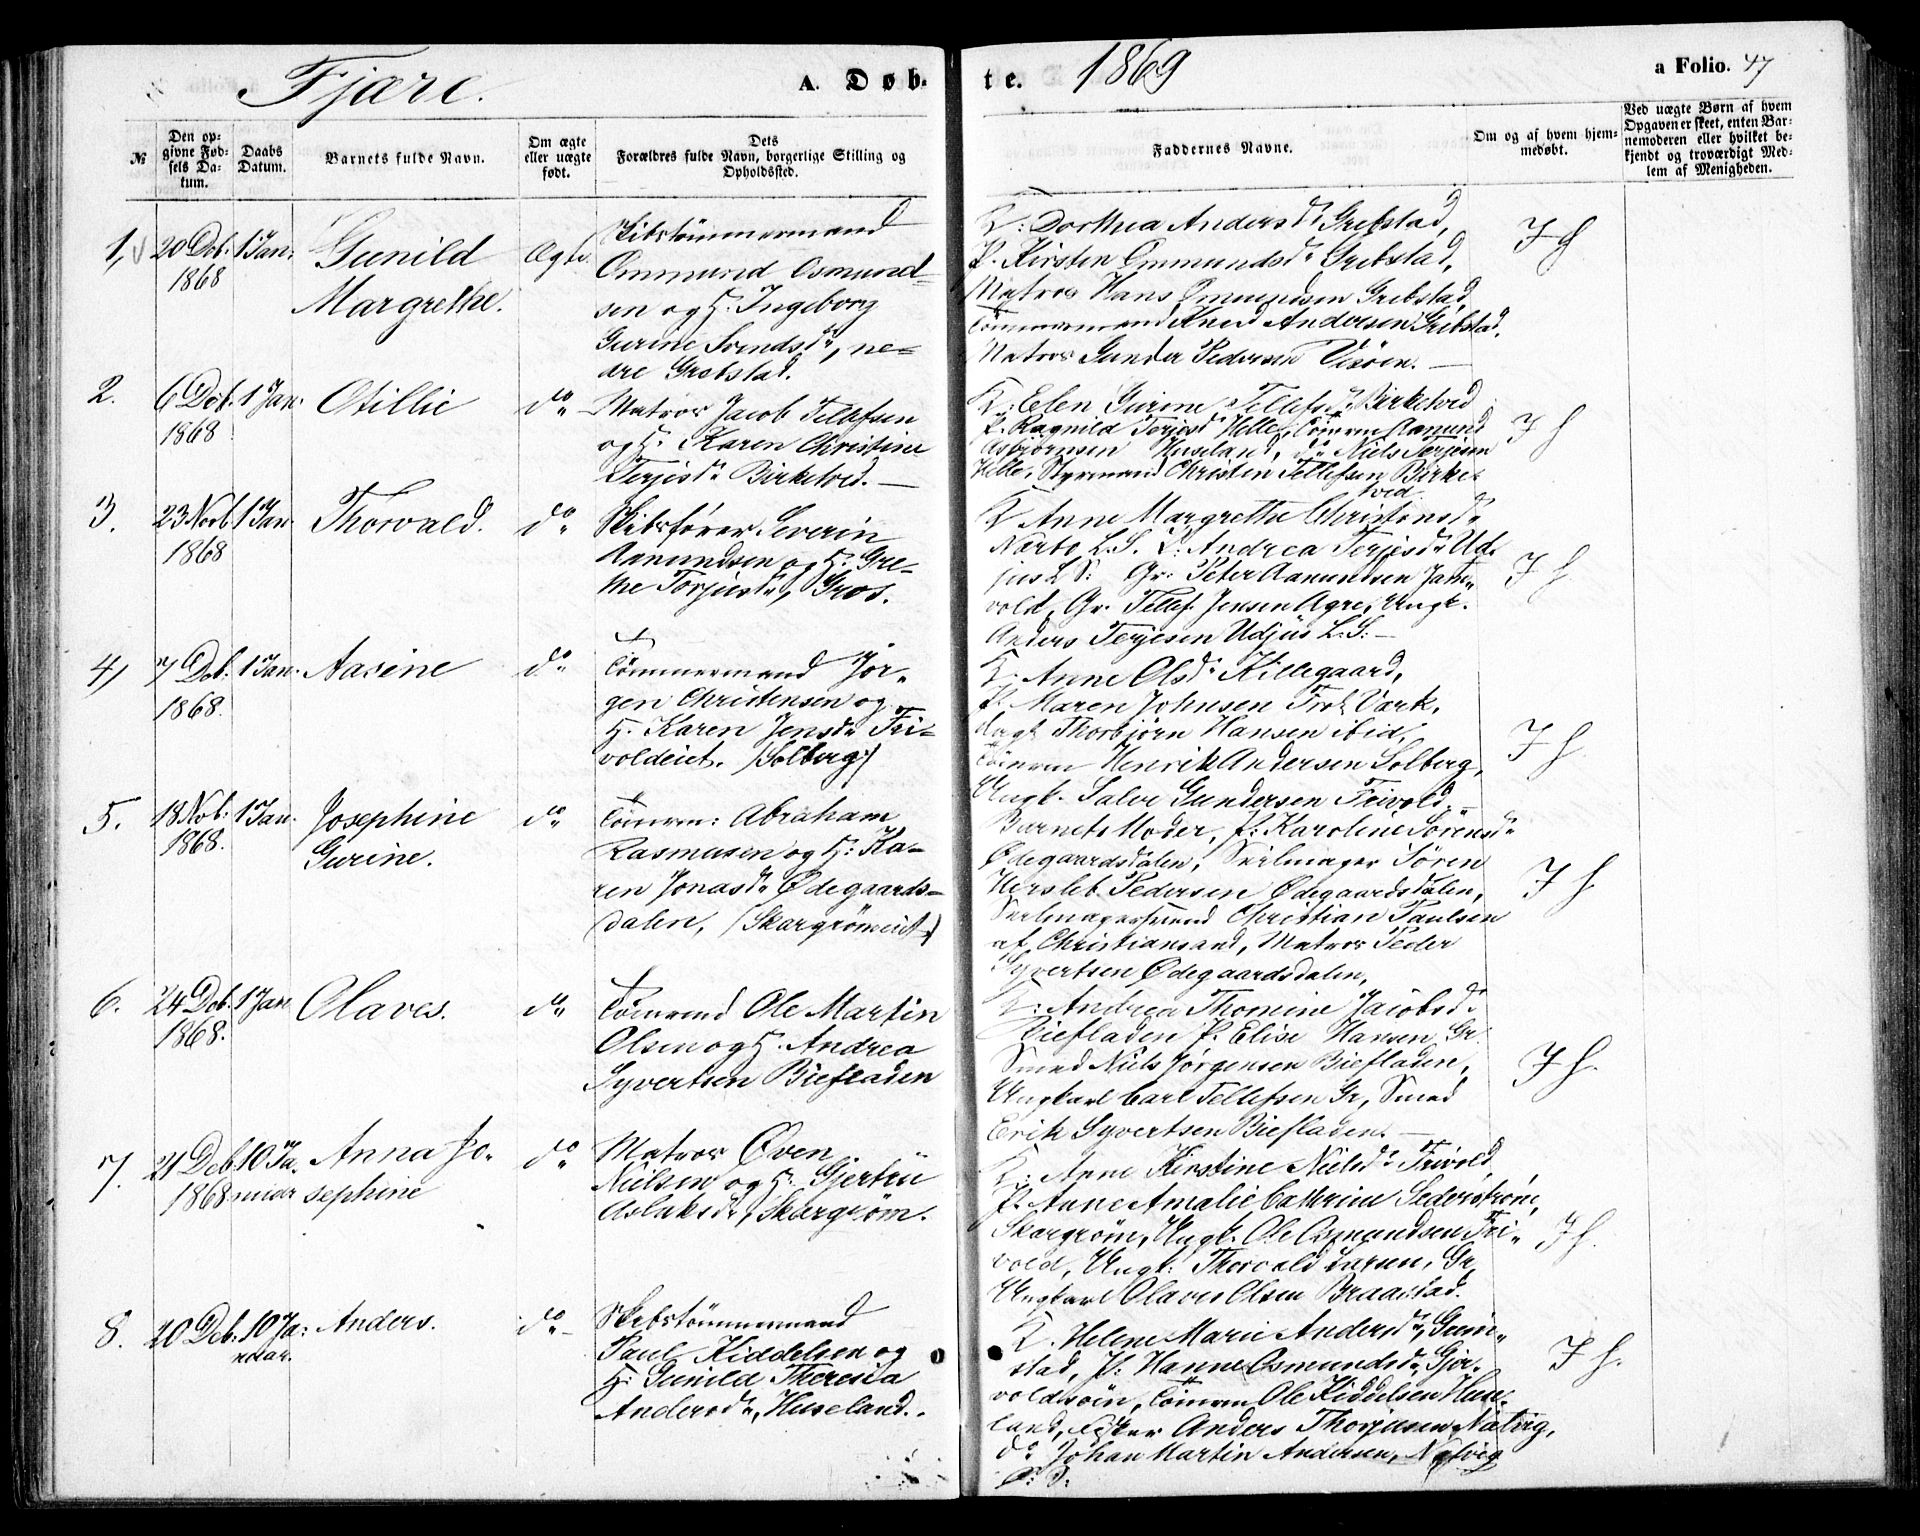 Fjære.
A. Døb-
te.
1869
a Folio. 47
№
Den op-
givne Fød-
sels Da-
tum.
Daabs
Datum.
Barnets fulde Navn.
Om ægte
eller uægte
født.
Dets
Forældres fulde Navn, borgerlige Stilling og
Opholdssted.
Faddernes Navne.
Om og af hvem hjem-
medøbt.
Ved uægte Børn af hvem
Opgaven er skeet, enten Bar-
nemoderen eller hvilket be-
kjendt og troværdigt Med-
lem af Menigheden.
1,
20 Deb.
1868
1 Jan:
Gunild
Margrethe.
Ægte
Skibstømmermand
Ommund Osmund-
sen og H. Ingeborg
Gurine Svends dr, ne-
dre Grebstad.
K: Dorthea Anders dr Grebstad,
P. Kirsten Ommunds dr Grebstad,
Matros Hans Omundsen Grebstad,
Tømmermand Knud Andersen Grebstad.
Matros Gunder Pedersen Visöen. —
J H
2.
6 Deb.
1868
1 Jan.
Otillie
do
Matros Jacob Tellefsen
og H. Karen Christine
Terjes dr Birketved. —
K: Elen Gurine Tellefs dr Birketved
P. Ragnild Terjes dr Helle, Tömrm Aamund
Asbjørnsen Huseland, do Niels Terjesen
Helle, Styrmand Christen Tellefsen Birke-
tved
J H
3.
23 Novb
1868
1 Jan.
Thorvald.
do
Skibsfører Severin
Aanundsen og H. Gre-
the Torjus dr, Gros.
K Anne Margrethe Christens dr
Nærbo L.S. P: Andrea Terjes dr Ud-
jus L S: Gr: Peter Aanundsen Jam-
vold, Gr. Tellef Jensen Agre, Ungk.
Anders Terjesen Udjus L. S: —
J H
4,
7 Deb.
1868.
1 Jan.
Aasine
do
Tømmermand Jör-
gen Christensen og
H. Karen Jens dr Fri-
voldeiet. (Solberg)
K. Anne Ols dr Killegaard,
P. Maren Johnsen Vark,
Ungk Thorbjørn Hansen ibid,
Tömrm Henrik Andersen Solberg,
Ungk. Salve Gundersen Frivold. —
J H
5.
18 Nob:
1868.
1 Jan.
Josephine
Gurine.
do
Tömrm: Abraham
Rasmusen og H: Ka-
ren Jonas dr Ødegaards-
dalen, (Skargrömeiet)
Barnets Moder, P: Karoline Sörens dr
Ødegaardsdalen, Seilmager Sören
Hersleb Pedersen Ødegaardsdalen,
Seilmagersvend Christian Paulsen
af Christiansand, Matros Peder
Syvertsen Ødegaardsdalen,
J H
6.
24 Deb.
1868.
1 Jan
Olaves.
do
Tömrmd Ole Martin
Olsen og H. Andrea
Syvertsen Biefladen
K: Andrea Thomine Jacobs dr
Biefladen P. Elise Hansen Gr.
Smed Niels Jörgensen Biefladen,
Ungkarl Carl Tellefsen Gr, Smed
Erik Syvertsen Biefladen. —
J H.
7.
21 Deb
1868
10 Ja-
nuar
Anna Jo-
sephine
do
Matros Even
Nielsen og H. Gjertru
Aslaks dr, Skargrøm.
K: Anne Kirstine Niels dr Frivold
P. Anne Amalie Cathrine Sederström,
Skargröm, Ungk. Ole Osmundsen Fri-
vold, Ungk: Thorvald Larsen, Gr,
Ungkarl Olaves Olsen Braastad.
J H.
8.
20 Deb.
10 Ja-
nuar.
Anders.
do
Skibstømmermand
Paul Kiddelsen og
H. Gunild Theresia
Anders dr, Huseland.
K. Helene Marie Anders dr, Grim-
stad, P: Hanne Osmunds dr Gjer-
voldsöin, Tömrm Ole Kiddelsen Huse-
land, Fisker Anders Thorjusen Natvig,
do Johan Martin Andersen, Natvig
J H.